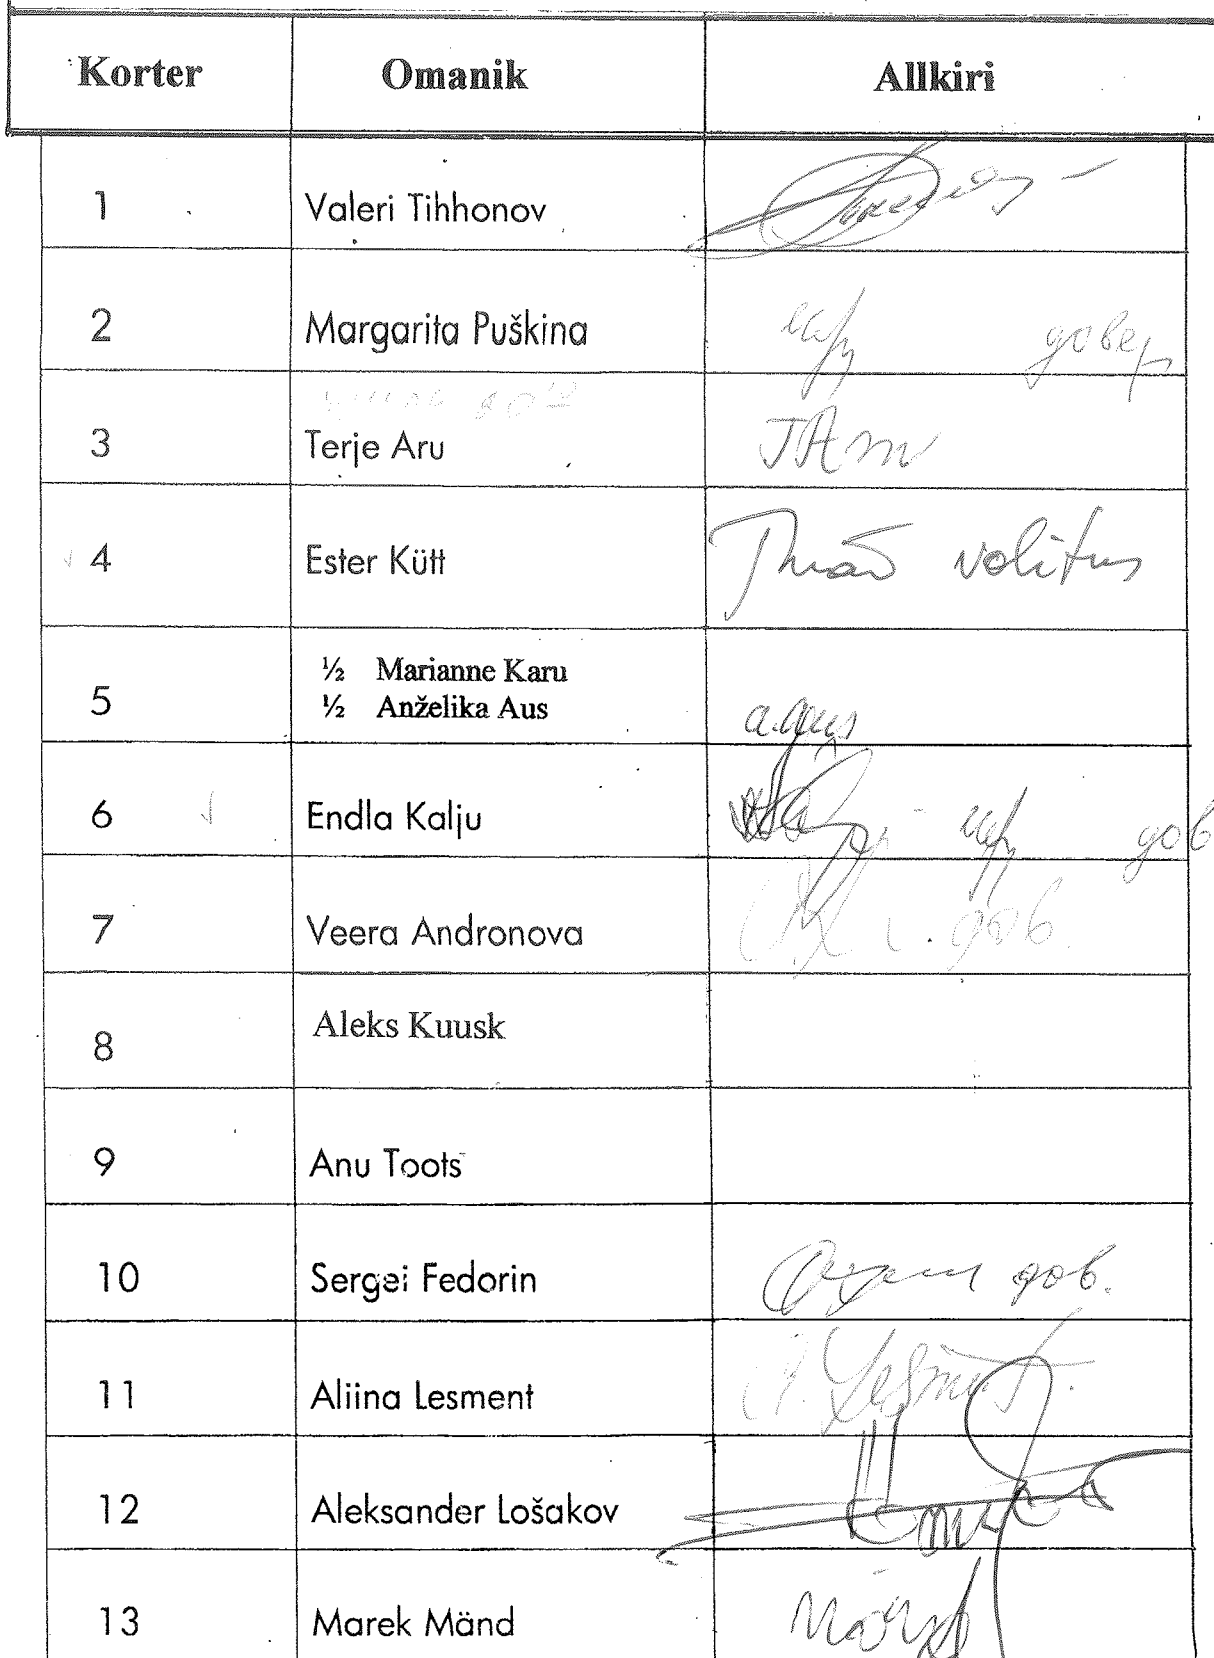 Korter Omanik Allkiri
1 Valeri Tihhonov
2 Margarita Puškina довер
3 Terje Aru
4 Ester Kütt volitus
½ Marianne Karu
5 ½ Anželika Aus a. Aus
6 Endla Kalju дов
7 Veera Andronova дов.
8 Aleks Kuusk
9 Anu Toots
10 Sergei Fedorin дов.
11 Aliina Lesment A. Lesment.
12 Aleksander Lošakov
13 Marek Mänd Mänd